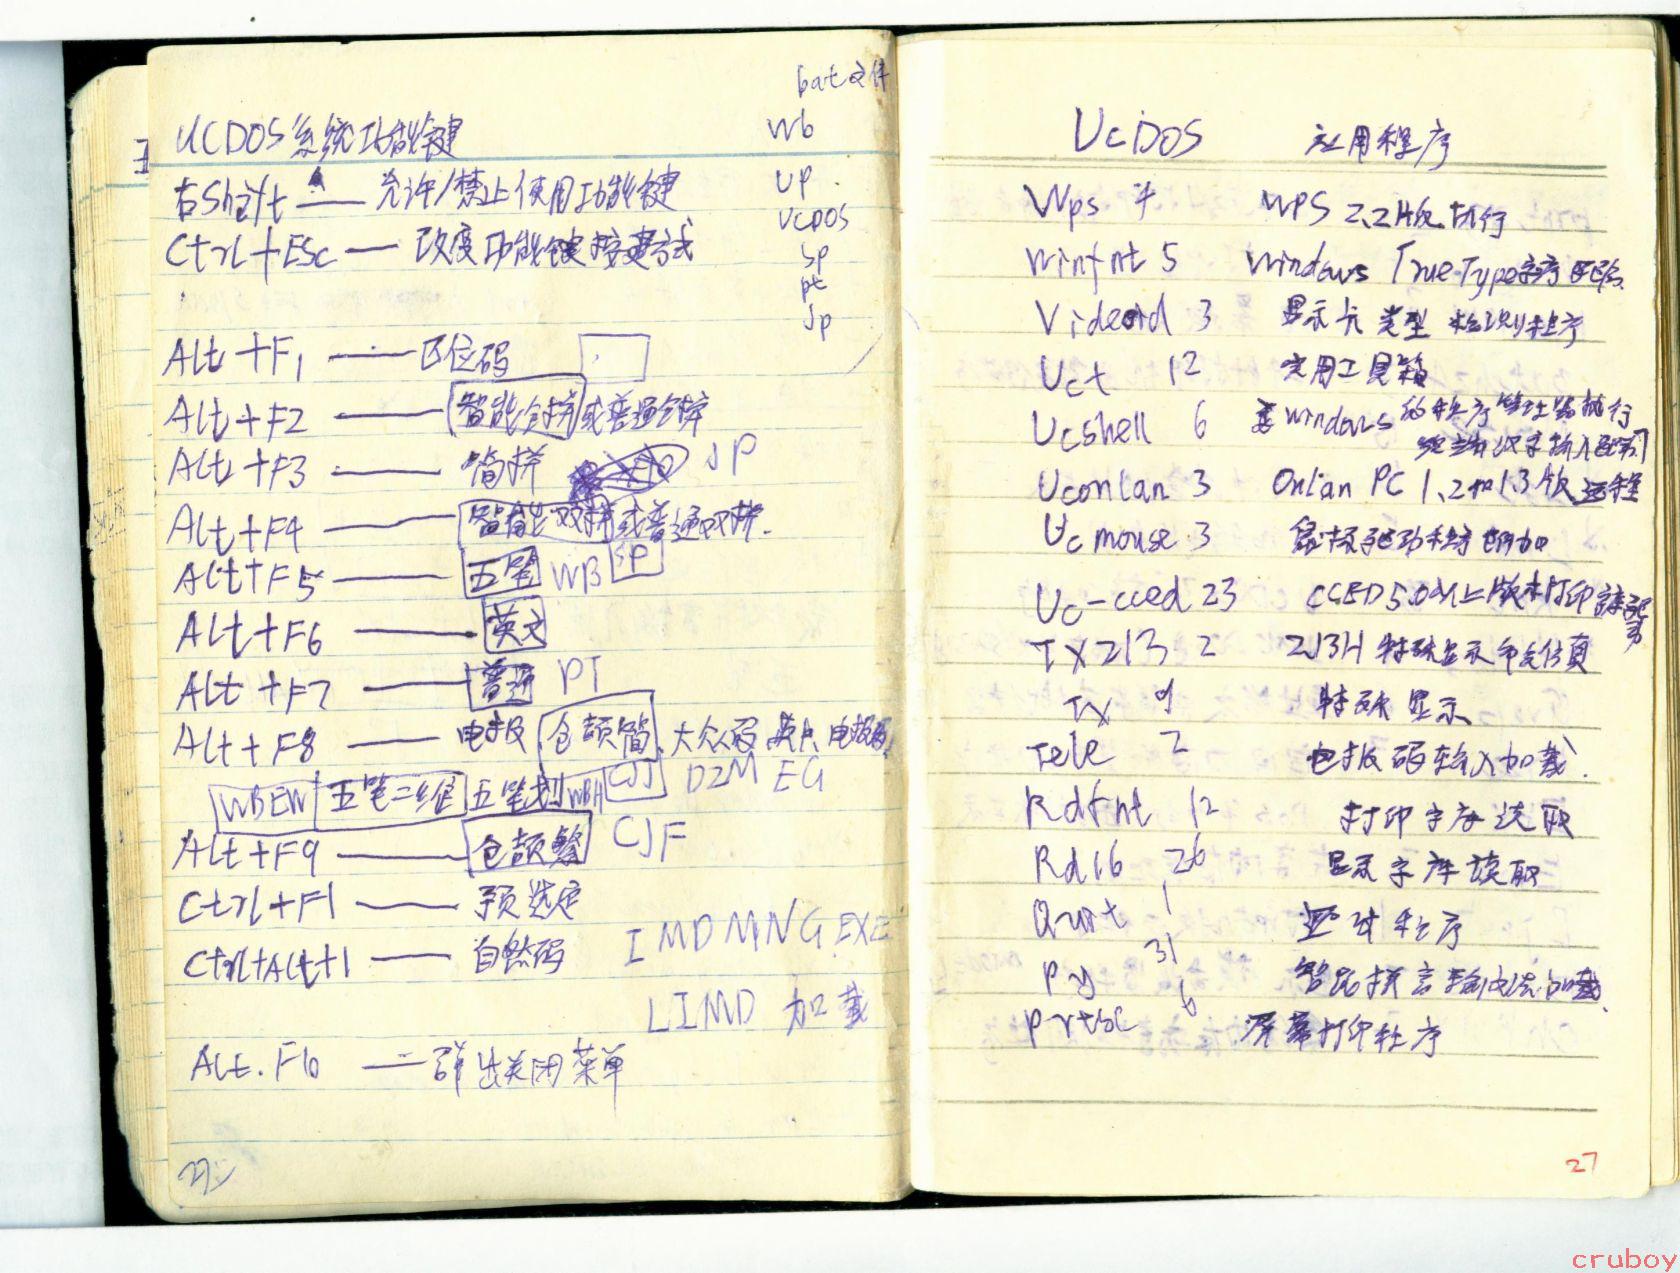 bat文件
Wb
UP
UCDOS
SP
pt
Jp
UCDOS系统功能键
右Shift — 允许/禁止使用功能键
Ctrl+ESc — 改变功能键按键方式
Alt+F1 — 区位码
Alt+F2 — 智能全拼或普通全拼
Alt+F3 — 简拼 JP
Alt+F4 — 智能双拼或普通双拼.
Alt+F5 — 五笔 WB SP
Alt+F6 — 英文
Alt+F7 — 普通 PT
Alt+F8 — 电报 仓颉简 大众码 电报码
WBEW 五笔二维 五笔划 WBH CJJ DZM EG
Alt+F9 — 仓颉繁 CJF
Ctrl+F1 — 预选定
Ctrl+Alt+1 — 自然码
IMDMNG.EXE
LIMD 加载
Alt.F6 — 弹出关闭菜单
UCDOS 应用程序
Wps 4 WPS 2.2版执行
Winfnt 5 Windows TrueType字库
Videoid 3 显示卡类型检测程序
Uct 12 实用工具箱
Ucshell 6 Windows的程序管理器执行
Uconlan 3 Onlan PC 1.2和1.3版远程
Ucmouse 3 鼠标驱动程序
Uc-cced 23 CCED5.0以上版本打印
TX213 2 213H特殊显示命令仿真
TX 9 特殊显示
Tele 2 电报码输入加载.
Rdfnt 12 打印字库读取
Rd16 26 显示字库读取
Quit 1 程序
Py 31 智能拼音输入法加载.
Prtsc 6 屏幕打印程序
27
cruboy